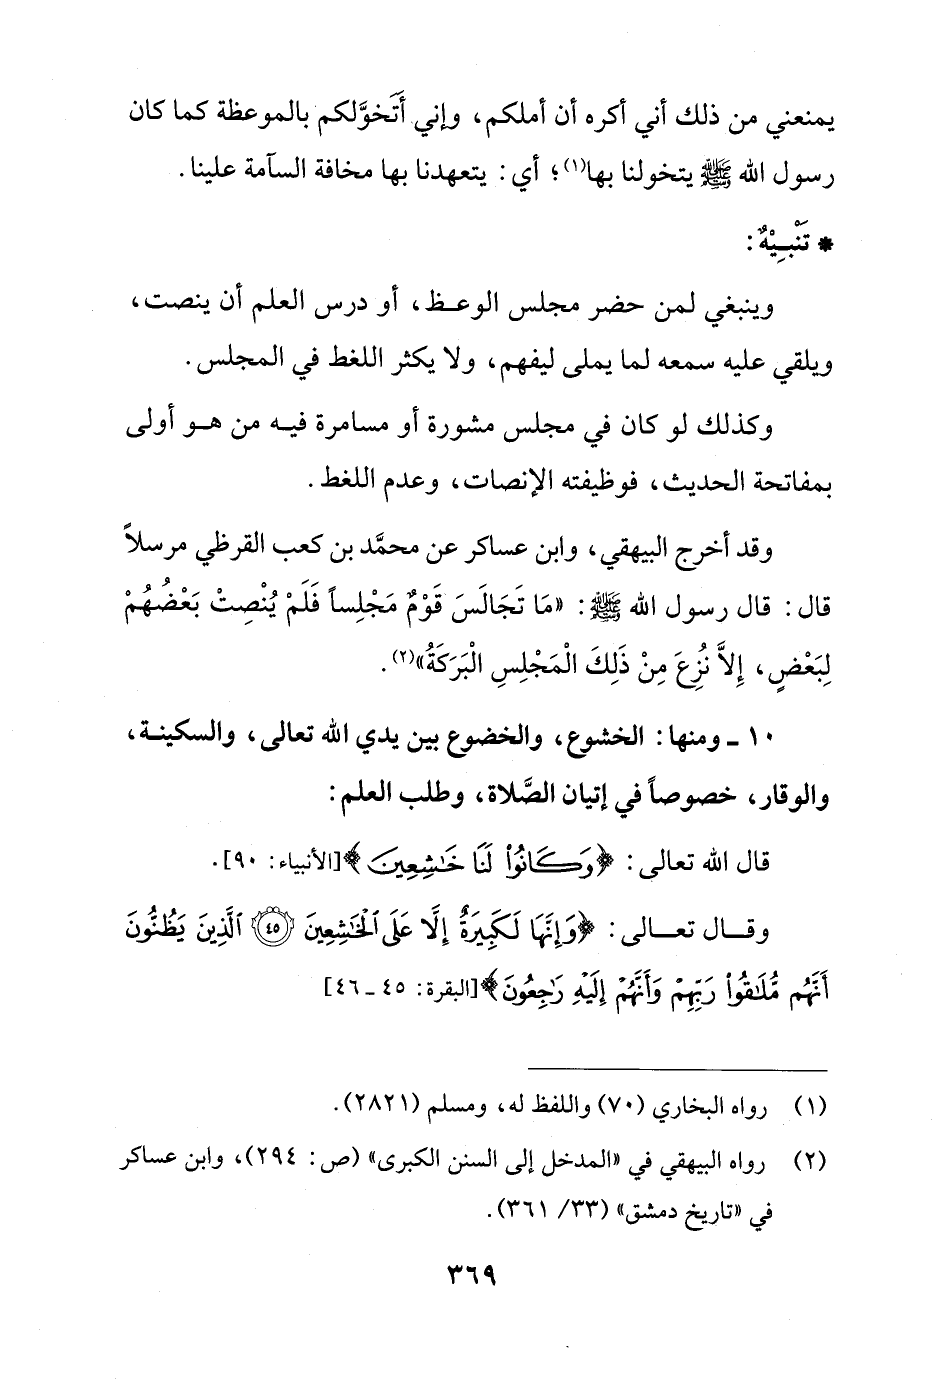 يمنعني من ذلك أني أكره أن أملكم، وإني أَتَخوَّلكم بالموعظة كما كان
رسول الله ﷺ يتخولنا بها(١)؛ أي: يتعهدنا بها مخافة السآمة علينا.
* تَنْبِيْهٌ:
وينبغي لمن حضر مجلس الوعظ، أو درس العلم أن ينصت،
ويلقي عليه سمعه لما يملى ليفهم، ولا يكثر اللغط في المجلس.
وكذلك لو كان في مجلس مشورة أو مسامرة فيه من هو أولى
بمفاتحة الحديث، فوظيفته الإنصات، وعدم اللغط.
وقد أخرج البيهقي، وابن عساكر عن محمَّد بن كعب القرظي مرسلاً
قال: قال رسول الله ﷺ: «مَا تَجَالَسَ قَوْمٌ مَجْلِساً فَلَمْ يُنْصِتْ بَعْضُهُمْ
لِبَعْضٍ، إِلاَّ نُزِعَ مِنْ ذَلِكَ الْمَجْلِسِ الْبَرَكَةُ»(٢).
١٠ ـ ومنها: الخشوع، والخضوع بين يدي الله تعالى، والسكينة،
والوقار، خصوصاً في إتيان الصَّلاة، وطلب العلم:
قال الله تعالى: ﴿وَكَانُواْ لَنَا خَٰشِعِينَ﴾[الأنبياء: ٩٠].
وقال تعالى: ﴿وَإِنَّهَا لَكَبِيرَةٌ إِلَّا عَلَى ٱلْخَٰشِعِينَ ٤٥ ٱلَّذِينَ يَظُنُّونَ
أَنَّهُم مُّلَٰقُواْ رَبِّهِمْ وَأَنَّهُمْ إِلَيْهِ رَٰجِعُونَ﴾[البقرة: ٤٥ ـ ٤٦]
(١) رواه البخاري (٧٠) واللفظ له، ومسلم (٢٨٢١).
(٢) رواه البيهقي في «المدخل إلى السنن الكبرى» (ص: ٢٩٤)، وابن عساكر
في «تاريخ دمشق» (٣٣/ ٣٦١).
٣٦٩